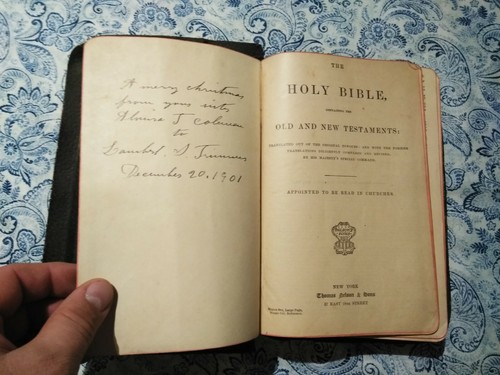 A merry christmas
from your
to
December 20, 1901
THE
HOLY BIBLE,
CONTAINING THE
OLD AND NEW TESTAMENTS:
TRANSLATED OUT OF THE ORIGINAL TONGUES; AND WITH THE FORMER
TRANSLATIONS DILIGENTLY COMPARED AND REVISED,
BY HIS MAJESTY'S SPECIAL COMMAND.
APPOINTED TO BE READ IN CHURCHES.
NEW YORK
Thomas Nelson & Sons
37 EAST 18TH STREET